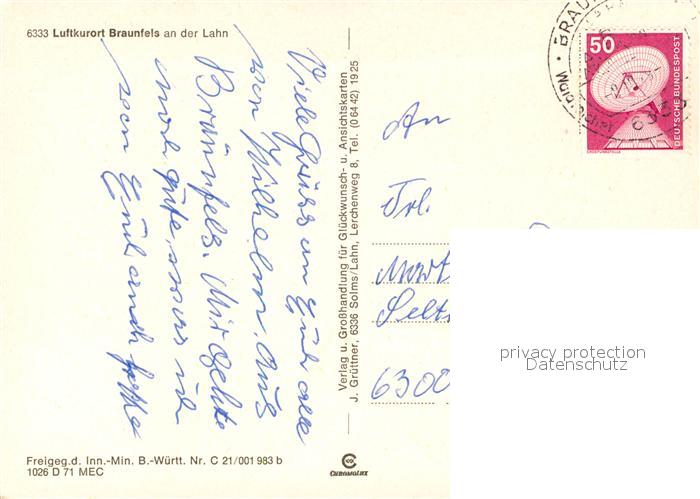 6333 Luftkurort Braunfels an der Lahn
Viele Grüss an Euch alle
von Wilhelm aus
Braunfels. Mir geht
gute,
von Euch auch
Verlag u. Großhandlung für Glückwunsch- u. Ansichtskarten
J. Grüttner, 6336 Solms/Lahn, Lerchenweg 8, Tel. (0 64 42) 19 25
An
Frl.
6300
50
DEUTSCHE BUNDESPOST
ERDEFUNKSTELLE
BRAU
633
privacy protection
Datenschutz
Freigeg.d. Inn.-Min. B.-Württ. Nr. C 21/001 983 b
1026 D 71 MEC
CHROMOLUX